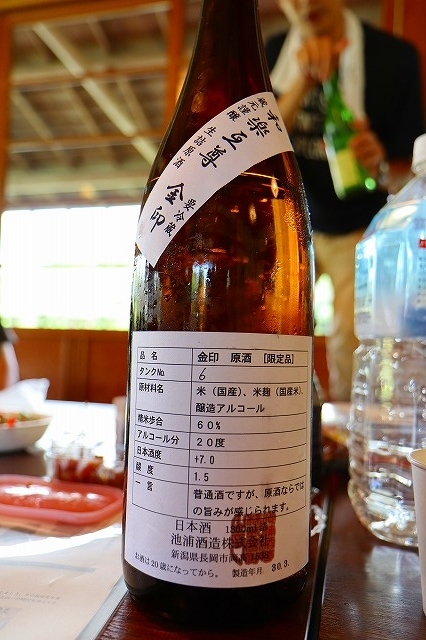 和楽互尊
蔵元謹醸
生詰原酒
金印
要冷蔵
品名 金印 原酒 [限定品]
タンクNo. 6
原材料名 米(国産)、米麹(国産米)、
醸造アルコール
精米歩合 60%
アルコール分 20度
日本酒度 +7.0
酸度 1.5
一言 普通酒ですが、原酒ならでは
の旨みが感じられます。
日本酒 1800ml詰
池浦酒造株式会社
新潟県長岡市両高1538
お酒は20歳になってから。 製造年月 30.3.